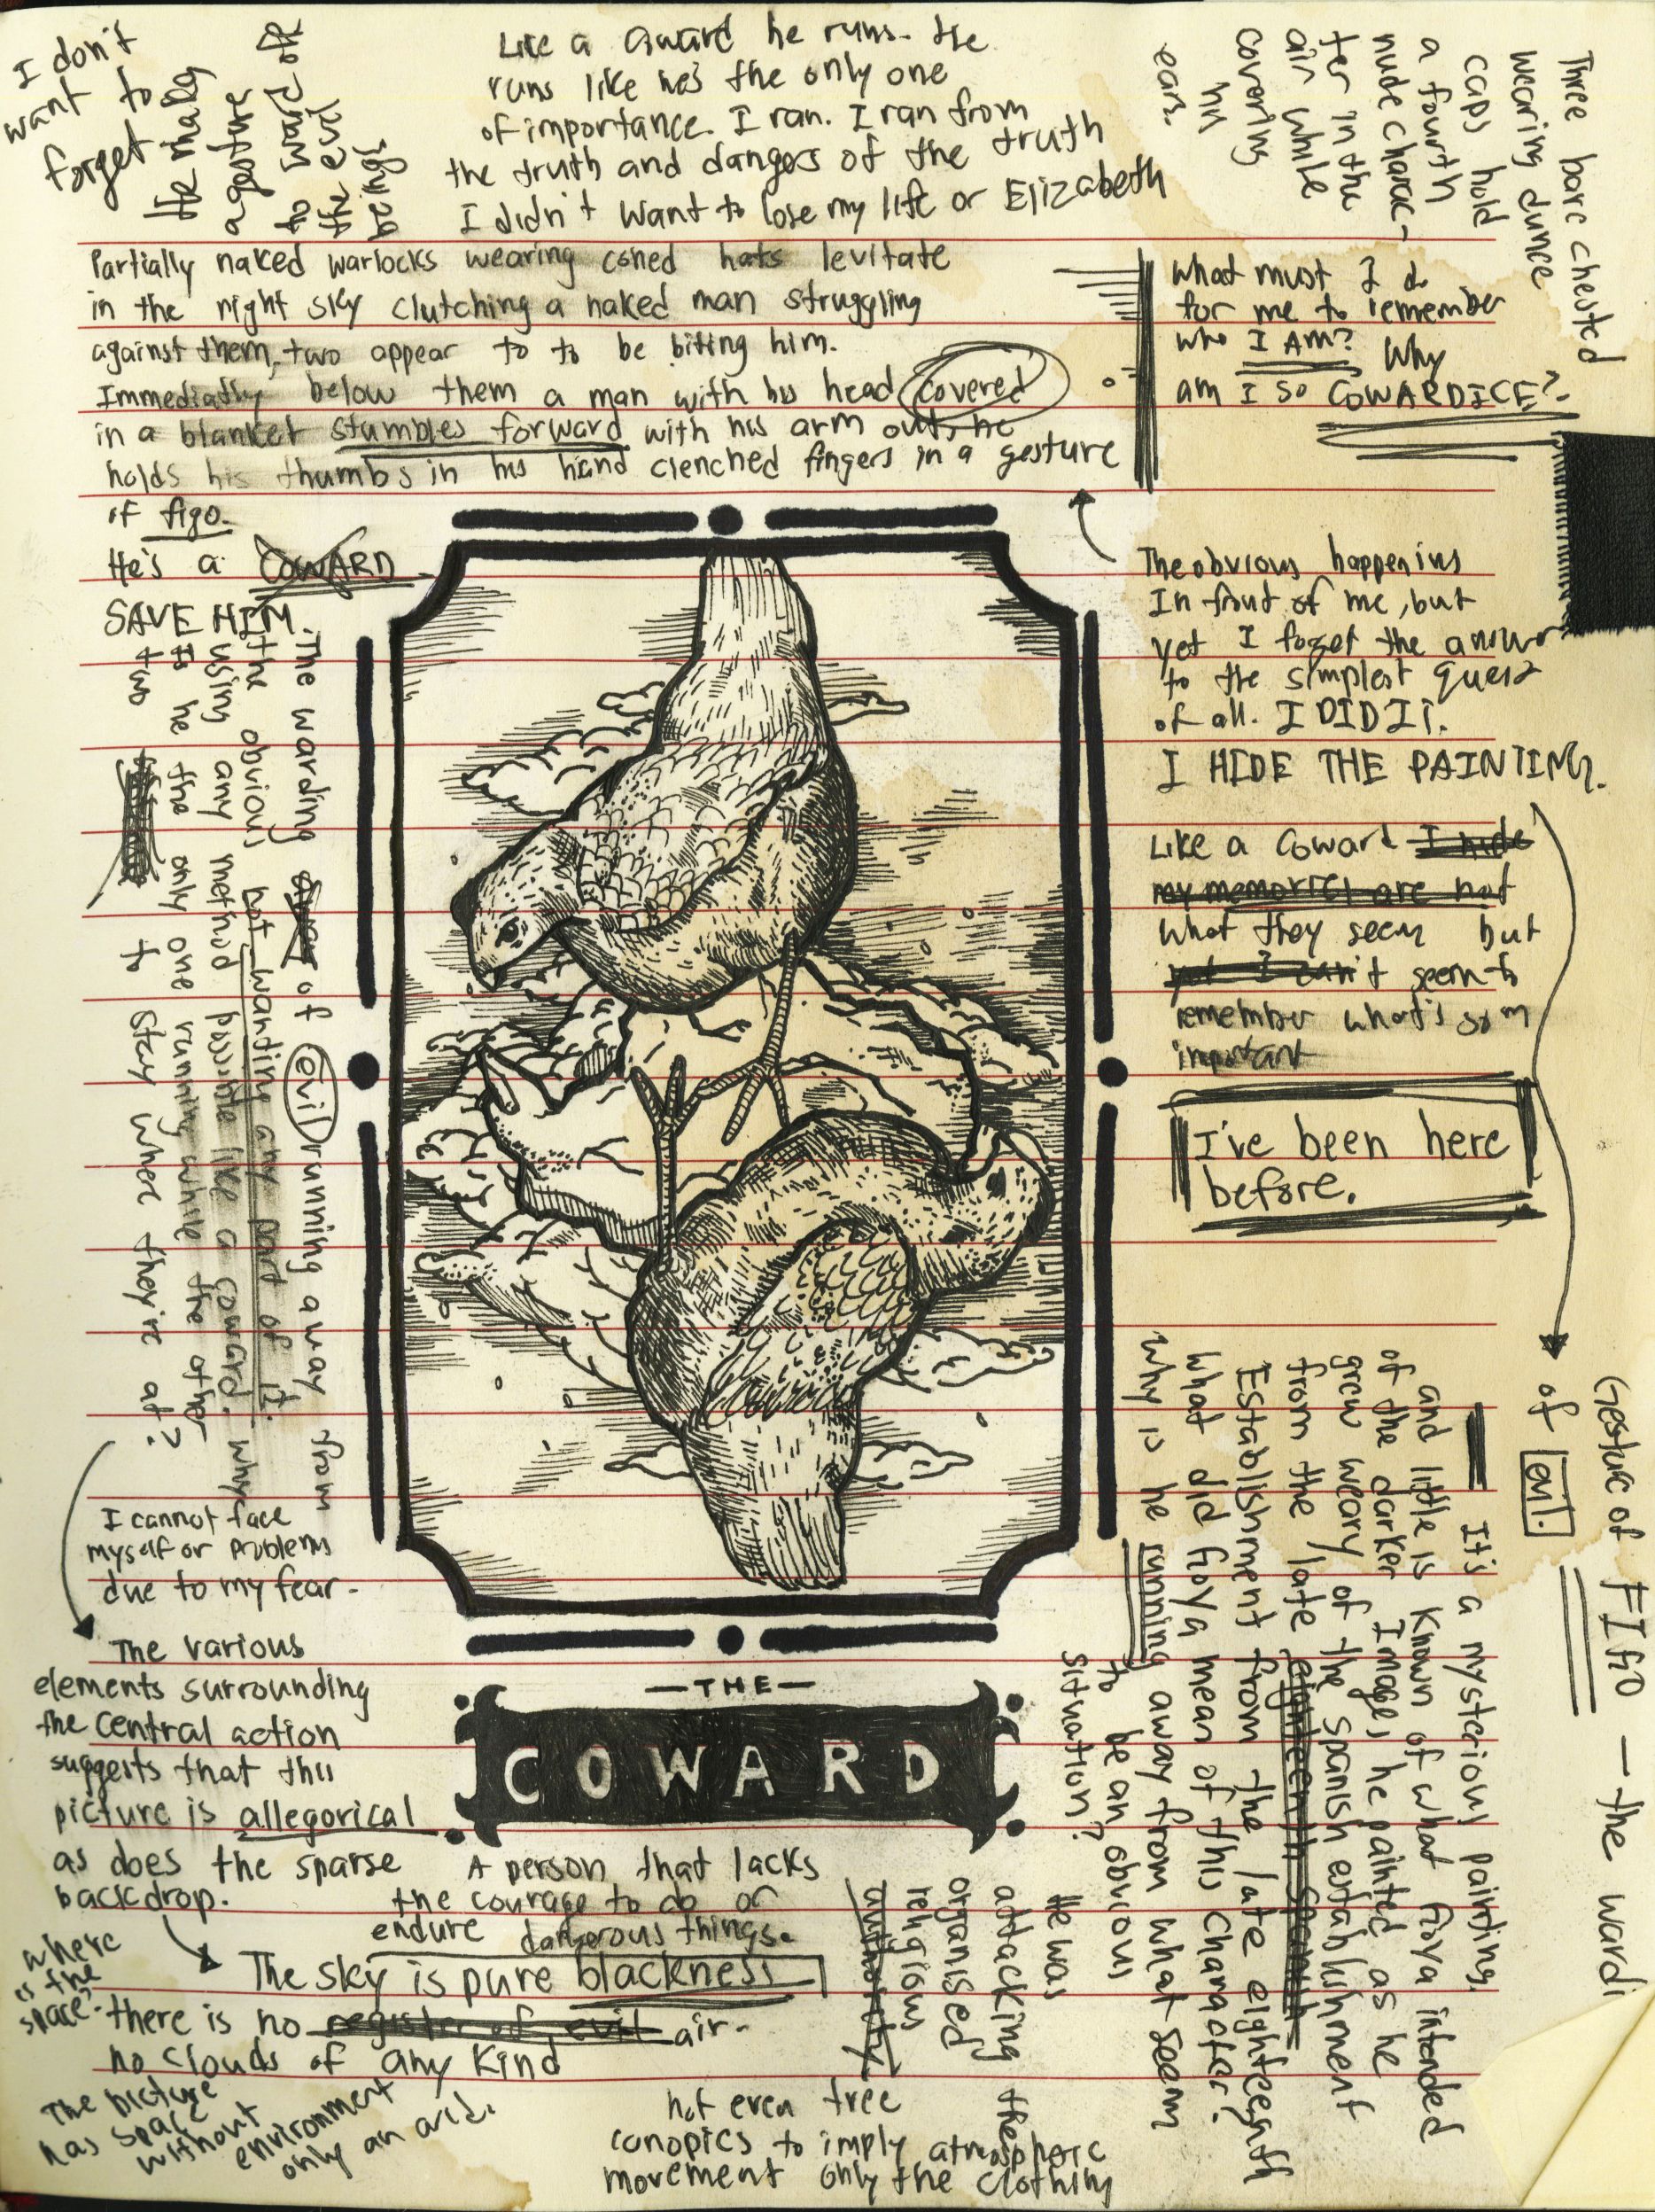 I don't
want to
forget
Like a coward he runs. He
runs like he's the only one
of importance. I ran. I ran from
the truth and dangers of the truth
I didn't want to lose my life or Elizabeth
Three bare chested
wearing dunce
caps hold
a fourth
nude charac-
ter in the
air while
covering
his
ears.
Partially naked warlocks wearing coned hats levitate
in the night sky clutching a naked man struggling
against them, two appear to to be biting him.
Immediatly below them a man with his head covered
in a blanket stumbles forward with his arm out, he
holds his thumbs in his hand clenched fingers in a gesture
of figo.
He's a COWARD
SAVE HIM.
What must I do
for me to remember
who I AM? Why
am I so COWARDICE?
The obvious happenins
In front of me, but
yet I forget the answer
to the simplest
of all. I DID IT.
I HIDE THE PAINTING.
Like a coward I hide
my memories are not
what they seem but
yet I can't seem to
remember what's so
important
I've been here
before.
The warding of evil running away from
the obvious not wanting any part of it.
using any method possible like a coward. why
Is he the only one running while the other
two to stay where they're at?
I cannot face
myself or problems
due to my fear.
The various
elements surrounding
the central action
suggests that this
picture is allegorical
as does the sparse
backdrop.
Gesture of FIGO — the wardi
of evil.
It's a mysterious painting,
and little is known of what Goya intended
of the darker images he painted as he
grew weary of the spanish establishment
from the late eighteenth spanish
Establishment from the late eighteenth
what did Goya mean of this character?
Why is he running away from what seem
to be an obvious
situation?
— THE —
COWARD
A person that lacks
the courage to do or
endure dangerous things.
He was
attacking the
organised
religious
authority
The sky is pure blackness
where
is the
space?
there is no register of evil air.
no clouds of any kind
The picture
has space
without
environment
only an arid.
not even tree
canopies to imply atmospheric
movement only the clothing